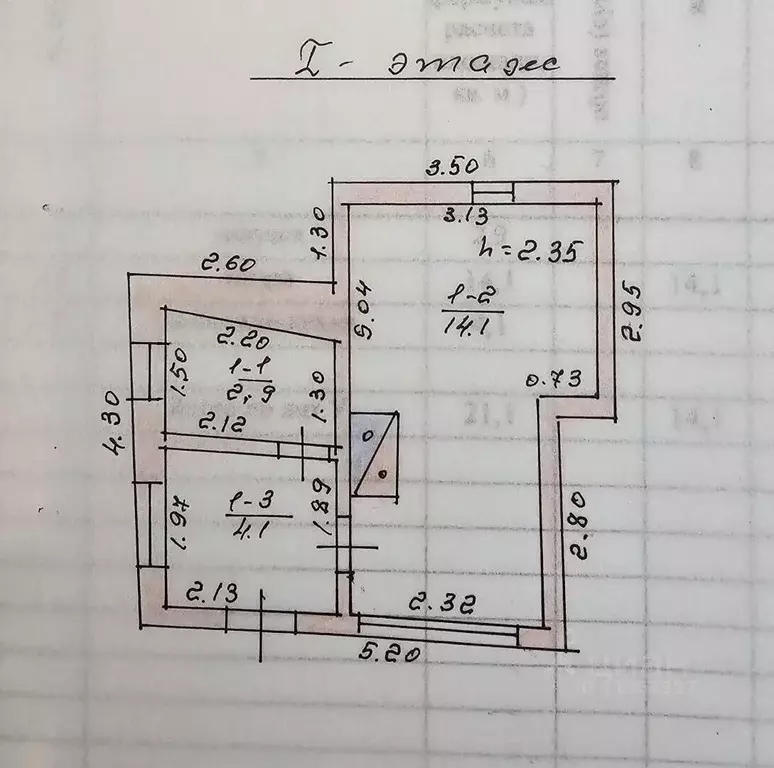 I - этаж
3.50
3.13
h=2.35
1.30
2.60
5.04
1-2
14.1
2.95
2.20
1-1
2,9
1.50
1.30
0.73
4.30
2.12
1-3
4.1
1.97
1.89
2.80
2.13
2.32
5.20
7
8
14,1
21,1
14,1